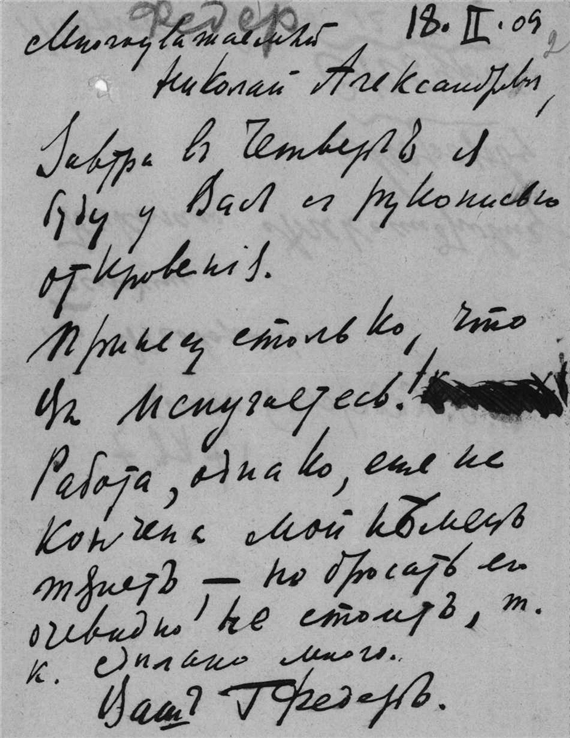 Федер
18.II.09
2
Многоуважаемый
Николай Александрович,
Завтра въ Четвергъ я
буду у Васъ съ рукописью
откровенія.
Принесу столько, что
Вы испугаетесь!
Работа, однако, еще не
кончена мой нѣмецъ
тянетъ — но бросать его
очевидно не стоитъ, т.
к. сдѣлано много.
Вашъ Г Федеръ.